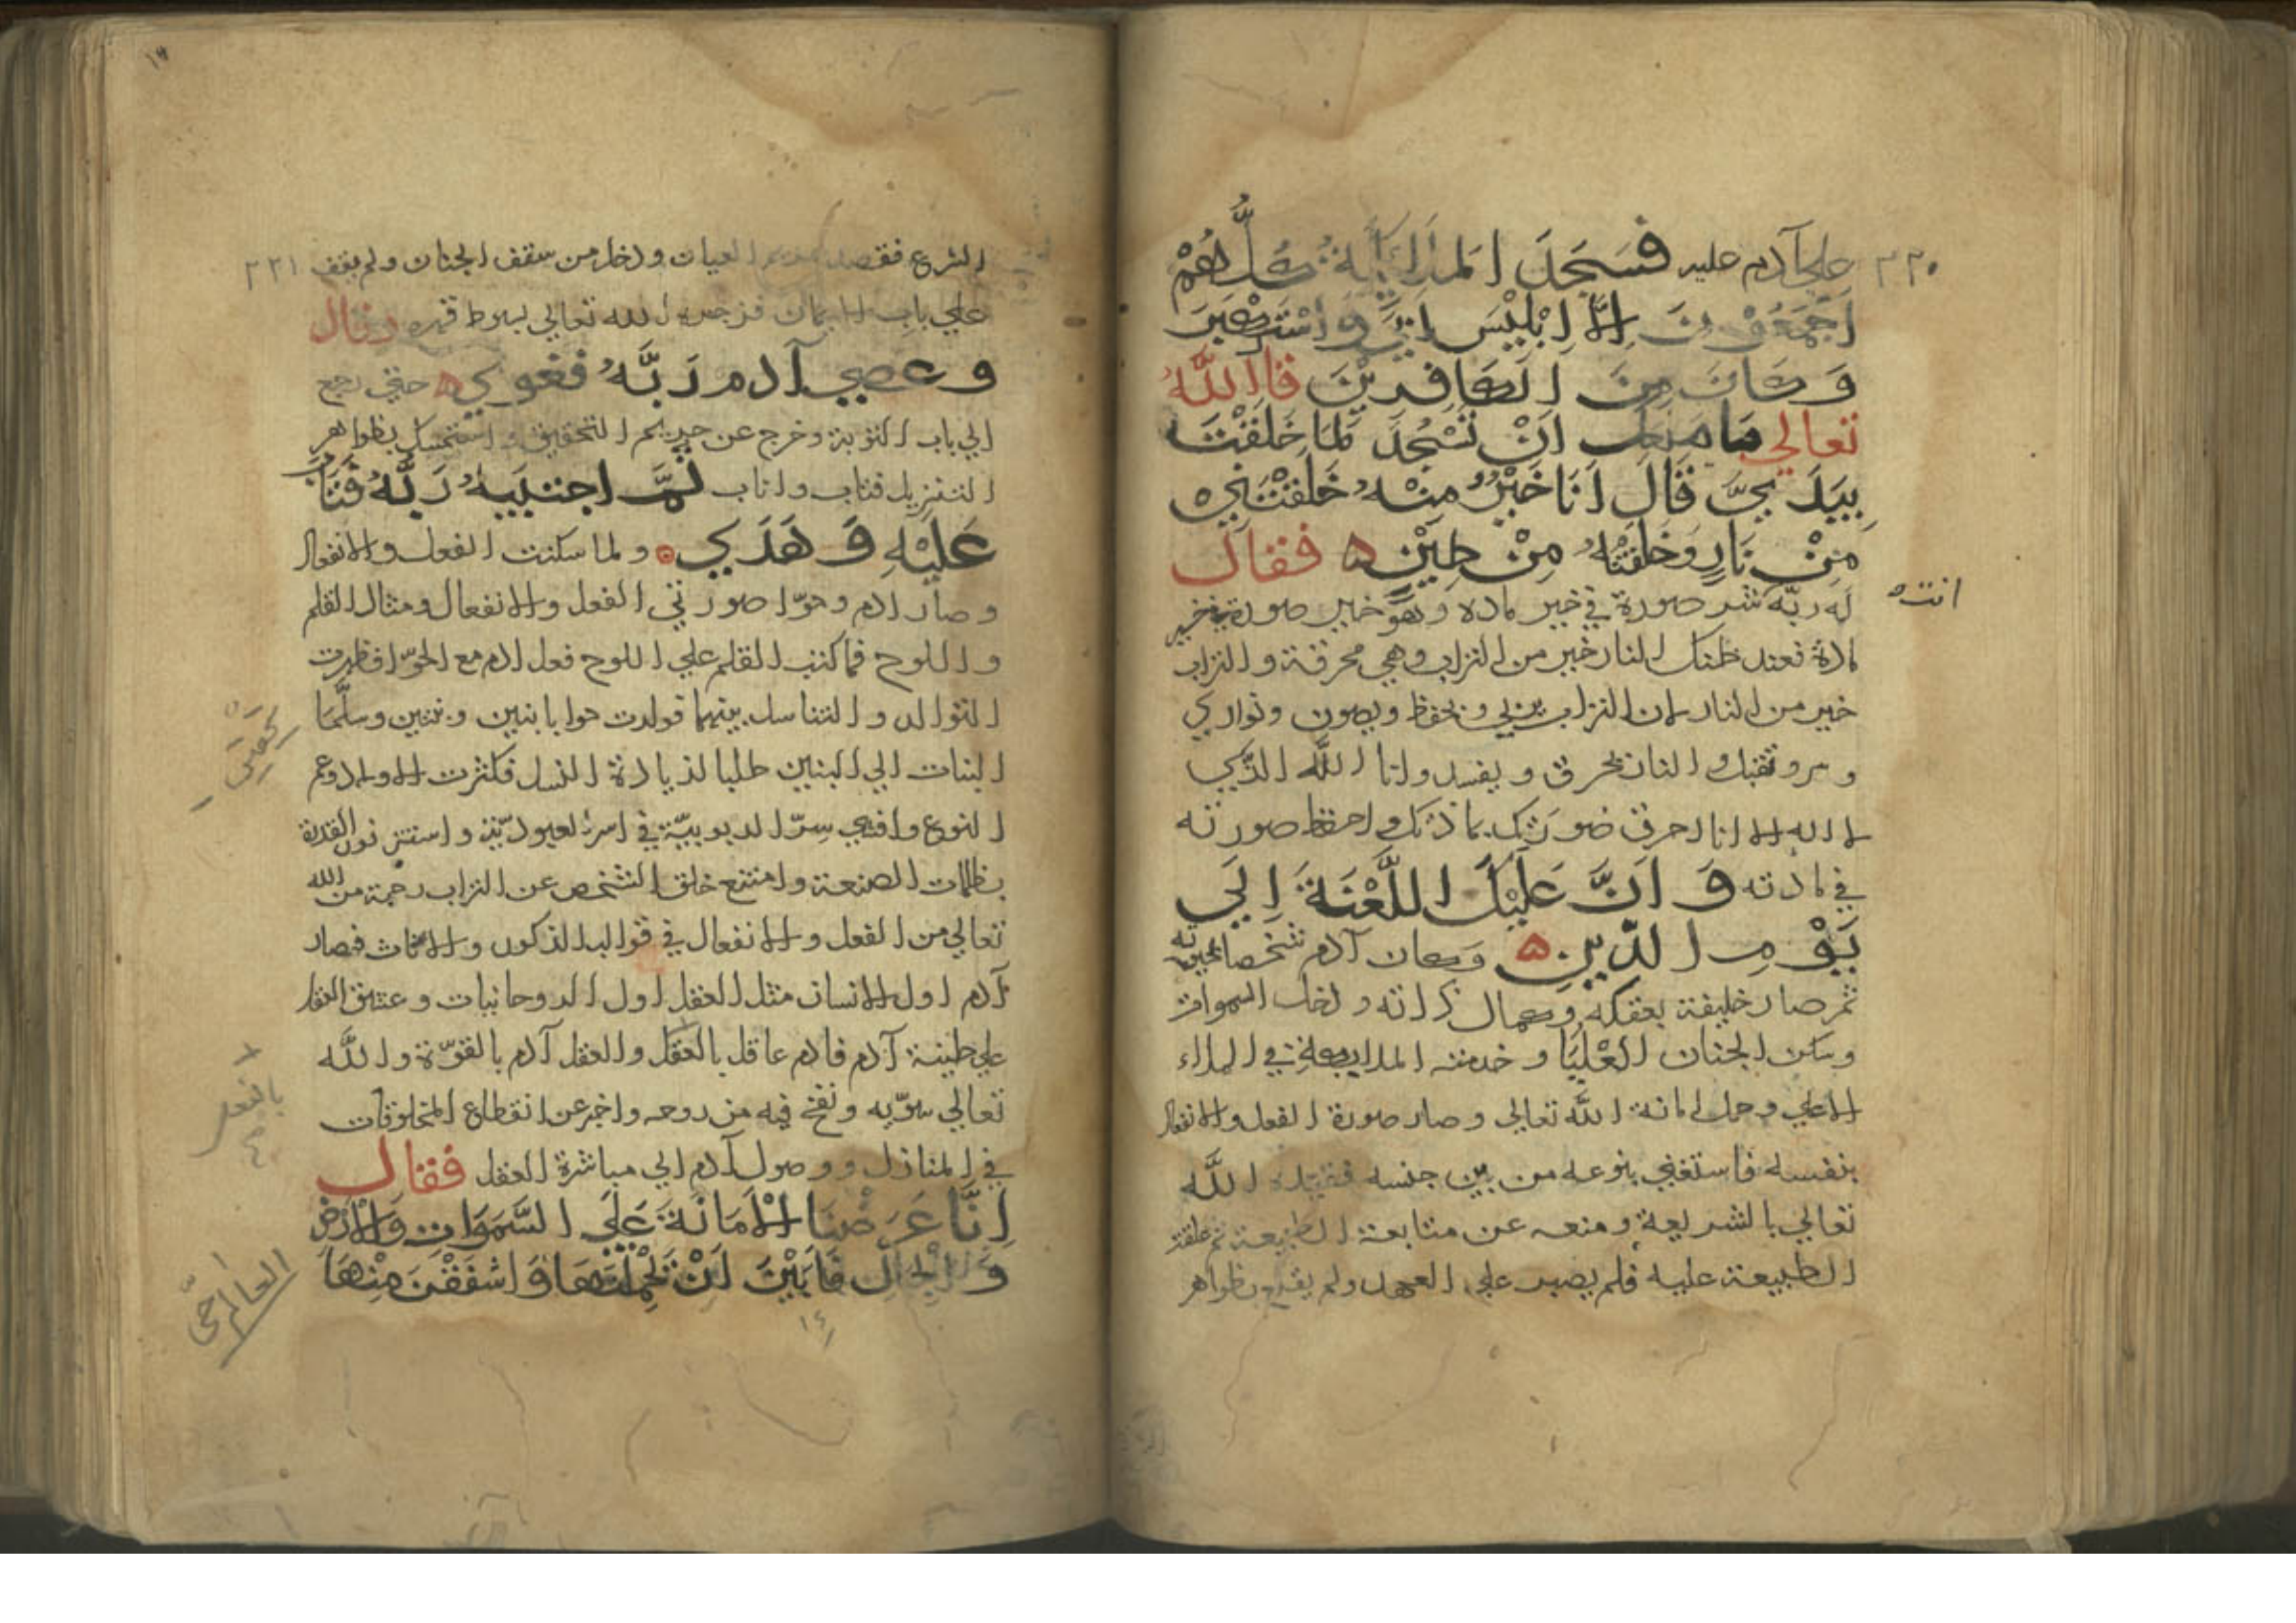 ٢٢٠
علي آدم عليه فَسَجَدَ المَلَائِكَةُ كُلُّهُمْ
اَجْمَعُوْنَ اِلَّا اِبْلِيْسَ اَبَيَ وَاسْتَكْبَرَ
وَكَانَ مِنَ الكَافِرِيْنَ قال اللّٰهُ
تعالي مَا مَنَعَكَ اَنْ تَسْجُدَ لِمَا خَلَقْتُ
بِيَدَيَّ قَالَ اَنَا خَيْرٌ مِنْهُ خَلَقْتَنِي
مِنْ نَارٍ وَخَلَقْتَهُ مِنْ طِيْنٍ ه فقال
له ربّه شر صورة في خير مادة وهو خير صورة في خير
انت
مادة فعند ظنك النار خير من التراب وهي محرقة والتراب
خير من النار لان التراب يربي و يحفظ ويصون و تواري
و النار يحرق و يفسد وانا اللّه الذي
لا اله الا انا احرق صورتك بماذتك واحفظ صورته
في مادته وَ اَنَّ عَلَيْكَ اللَّعْنَةَ اِلَي
يَوْمِ الدّينِ ه وكان آدم شخصا
ثم صار خليفة بعقله وكمال ذاته ودخل السموات
وسكن الجنان العُلْيَا و خدمته الملايكة في الملاء
الاعلي وحمل امانة اللّه تعالي وصار صورة الفعل والانفعال
بنفسه فاستغني بنوعه من بين جنسه فقيده اللّه
تعالي بالشريعة ومنعه عن متابعة الطبيعة ثم غلبت
الطبيعة عليه فلم يصبر علي العهد ولم يقنع بظواهر
٢٢١
الشرع فقصد حريم العيان ودخل من سقف الجنان ولم يقف
علي باب الايمان فزجره اللّه تعالي بسوط قهره وقال
وعصي آدم رَبَّهُ فغوي ه حتي رجع
الي باب التوبة وخرج عن حريم التحقيق واستمسك بظواهر
التنزيل فتاب واناب ثُمَّ اجتبيهُ رَبُّهُ فَتَابَ
عَلَيْهِ وَهَدَي ه ولما سكنت الفعل والانفعال
وصار ادم وحوّا صورتي الفعل والانفعال ومثال القلم
واللوح فما كتب القلم علي اللوح فعل ادم مع الحوّا فظهرت
التوالد والتناسل بينهما فولدت حوا بابنين و بنتين وسلّما
البنات الي البنين طلبا لزيادة النسل فكثرت الاولاد وعم
النوع وافشي سرّ الربوبيّة في اسر العبوديّة واستتر نور القدرة
بظلمات الصنعة وامتنع خلق الشخص عن التراب رحمة من اللّه
تعالي من الفعل والانفعال في قوالب الذكور والاناث فصار
آدم اول الانسان مثل العقل اول الروحانيات وعشق العقل
علي طينة آدم فادم عاقل بالعقل والعقل آدم بالقوّة واللّه
بالفعل
تعالي سوّيه ونفخ فيه من روحه واخبر عن انقطاع المخلوقات
في المنازل ووصول آدم الي مباشرة العقل فقال
اِنَّا عَرَضْنَا الْاَمَانَةَ عَلَي السَّمَوَاتِ وَالْاَرْضِ
وَالْجِبَالِ فَاَبَيْنَ اَنْ يَحْمِلْنَهَا وَاَشْفَقْنَ مِنْهَا
١٤